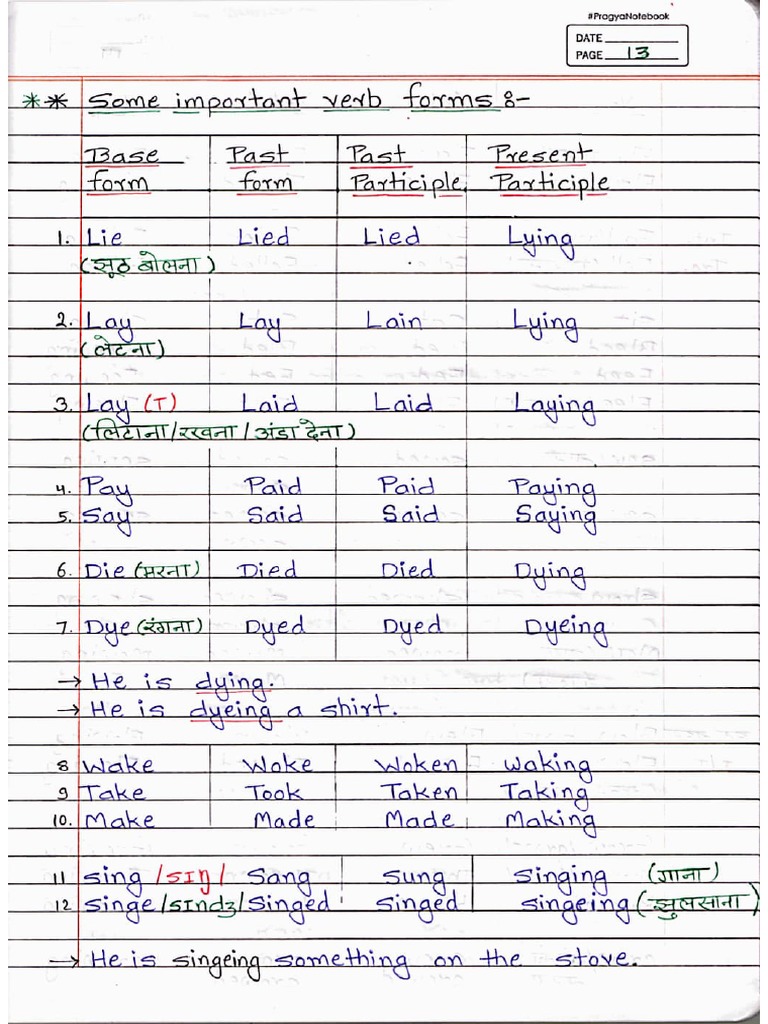 #PragyaNotebook
DATE
PAGE 13
** Some important verb forms :-
Base Past Past Present
form form Participle Participle
1. Lie Lied Lied Lying
(झूठ बोलना)
2. Lay Lay Lain Lying
(लेटना)
3. Lay (T) Laid Laid Laying
(लिटाना/रखना/अंडा देना)
4. Pay Paid Paid Paying
5. Say Said Said Saying
6. Die (मरना) Died Died Dying
7. Dye (रंगना) Dyed Dyed Dyeing
→ He is dying.
→ He is dyeing a shirt.
8 Wake Woke Woken Waking
9 Take Took Taken Taking
10. Make Made Made Making
11 Sing /sɪŋ/ Sang Sung Singing (गाना)
12 Singe /sɪndʒ/ Singed Singed Singeing (झुलसाना)
→ He is singeing something on the stove.